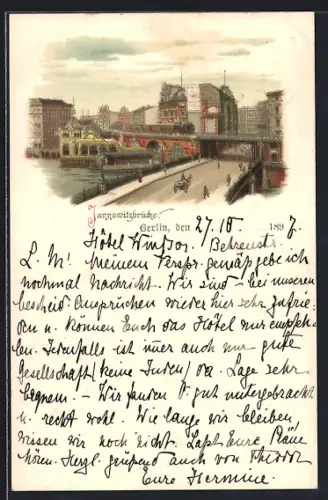 Jannowitzbrücke.
Berlin, den 27/10. 1897.
Hôtel Windsor. Behrenstr.
L. M! Meinem Verspr. gemäß gebe ich
nochmal Nachricht. Wir sind bei unseren
bescheid. Ansprüchen wieder hier sehr zufrie-
den u. können Euch das Hôtel nur empfeh-
len. Jedenfalls ist im̅er auch nur gute
Gesellschaft (keine Juden) da. Lage sehr
bequem. – Wir fanden P. gut untergebracht
u. recht wohl. Wie lange wir bleiben,
wissen wir noch nicht. Laßt Eure Pläne
hören. Herzl. grüßend auch von Theodor
Eure Hermine.